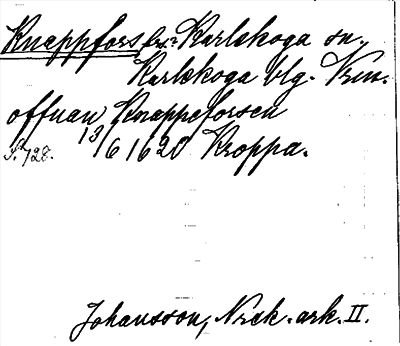 Knappfors by? Karlskoga sn.,
Karlskoga blg. Vrm.
offuan Knappeforsen
13/6 1620 Kroppa.
s. 728.
Johansson, Nrck. ark. II.